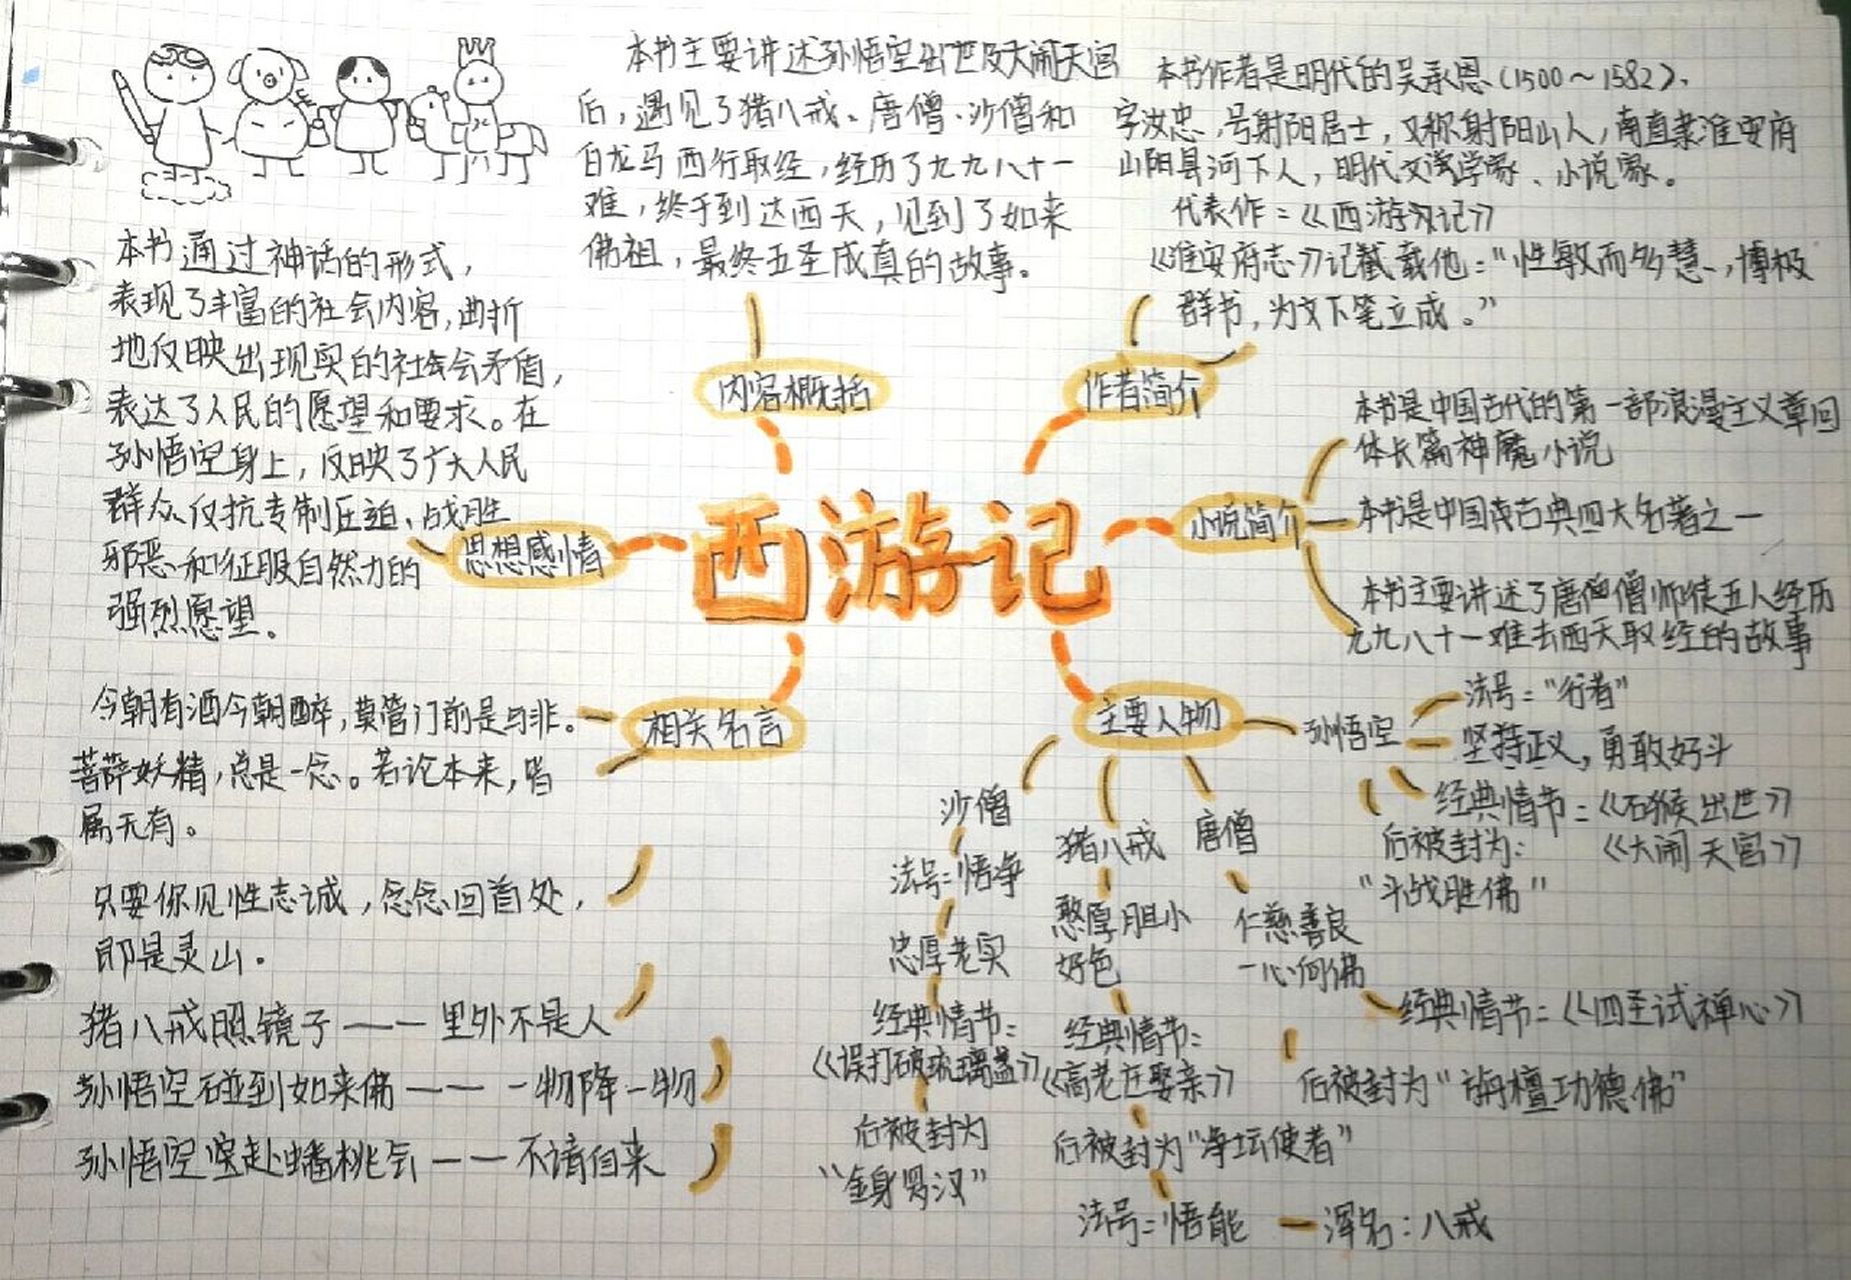 本书主要讲述孙悟空出世及大闹天宫
后，遇见了猪八戒、唐僧、沙僧和
白龙马西行取经，经历了九九八十一
难，终于到达西天，见到了如来
佛祖，最终五圣成真的故事。
内容概括
本书作者是明代的吴承恩（1500～1582），
字汝忠，号射阳居士，又称射阳山人，南直隶淮安府
山阳县河下人，明代文学家、小说家。
代表作：《西游记》
《淮安府志》记载他：“性敏而多慧，博极
群书，为文下笔立成。”
作者简介
本书是中国古代的第一部浪漫主义章回
体长篇神魔小说
本书是中国古典四大名著之一
本书主要讲述了唐僧师徒五人经历
九九八十一难去西天取经的故事
小说简介
西游记
本书通过神话的形式，
表现了丰富的社会内容，曲折
地反映出现实的社会矛盾，
表达了人民的愿望和要求。在
孙悟空身上，反映了广大人民
群众仅抗专制压迫、战胜
邪恶和征服自然力的
强烈愿望。
思想感情
相关名言
今朝有酒今朝醉，莫管门前是与非。
菩萨妖精，总是一念。若论本来，皆
属无有。
只要你见性志诚，念念回首处，
即是灵山。
猪八戒照镜子——里外不是人
孙悟空碰到如来佛——一物降一物
孙悟空突赴蟠桃会——不请自来
主要人物
孙悟空
法号：“行者”
坚持正义，勇敢好斗
经典情节：《石猴出世》
《大闹天宫》
后被封为：
“斗战胜佛”
唐僧
仁慈善良
一心向佛
经典情节：《四圣试禅心》
后被封为“旃檀功德佛”
猪八戒
憨厚胆小
好色
经典情节：
《高老庄娶亲》
后被封为“净坛使者”
法号：悟能 — 浑名：八戒
沙僧
法号：悟净
忠厚老实
经典情节：
《误打破琉璃盏》
后被封为
“金身罗汉”